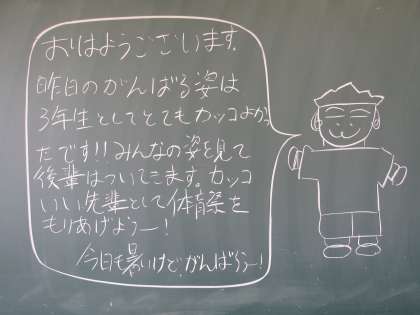 おはようございます。
昨日のがんばる姿は
3年生としてとてもカッコよかっ
たです!!みんなの姿を見て
後輩はついてきます。カッコ
いい先輩として体育祭を
もりあげようー!
今日も暑いけど、がんばろうー!